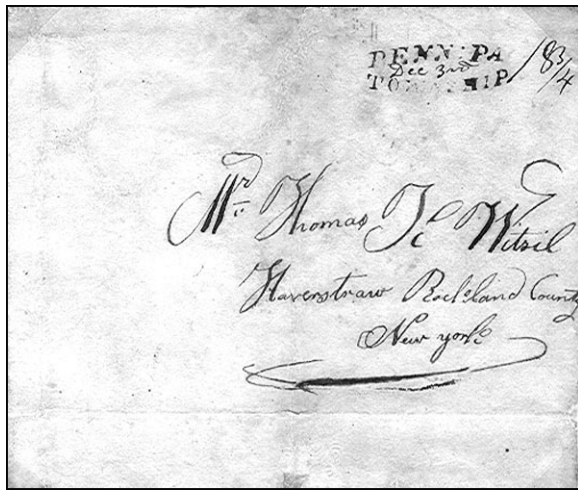 PENN: PA
Dec 3rd
TOWNSHIP
18 3/4
Mr Thomas De Witsil
Haverstraw Rockland County
New york